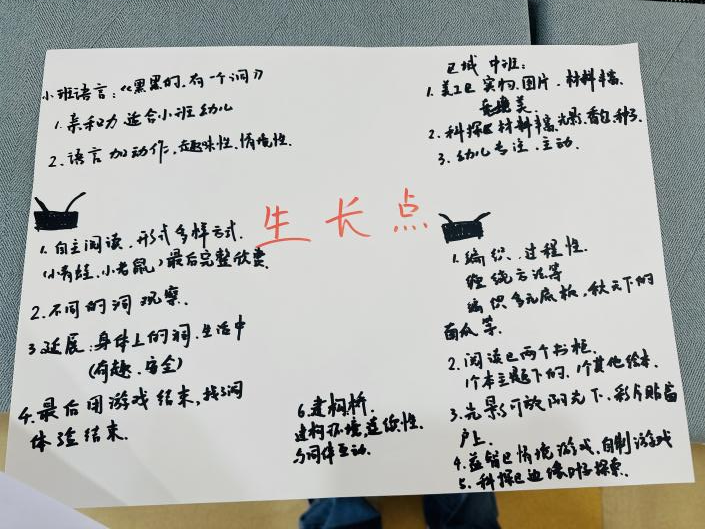 小班语言：《果果的，有一个洞》
1. 亲和力 适合小班幼儿
2. 语言加动作，趣味性、情境性.
区域 中班：
1. 美工区 实物、图片、材料丰富
美
2. 科探区 材料丰富，光影、香包、种子
3. 幼儿专注、主动.
生长点
1. 自主阅读、形式多样方式.
(小青蛙、小老鼠) 最后完整欣赏.
2. 不同的洞 观察.
3 延展：身体上的洞、生活中
(有趣、安全)
4. 最后用游戏结束，找洞
体验结束.
1. 编织、过程性.
缠绕方法等
编织多元底板，秋天下的
南瓜等.
2. 阅读区两个书柜.
1个本主题下的，1个其他绘本.
3. 光影可放阳光下，彩片贴窗
户上.
4. 益智区情境游戏，自制游戏
5. 科探区边缘探索.
6. 建构桥.
建构环境，连续性.
与同伴互动.